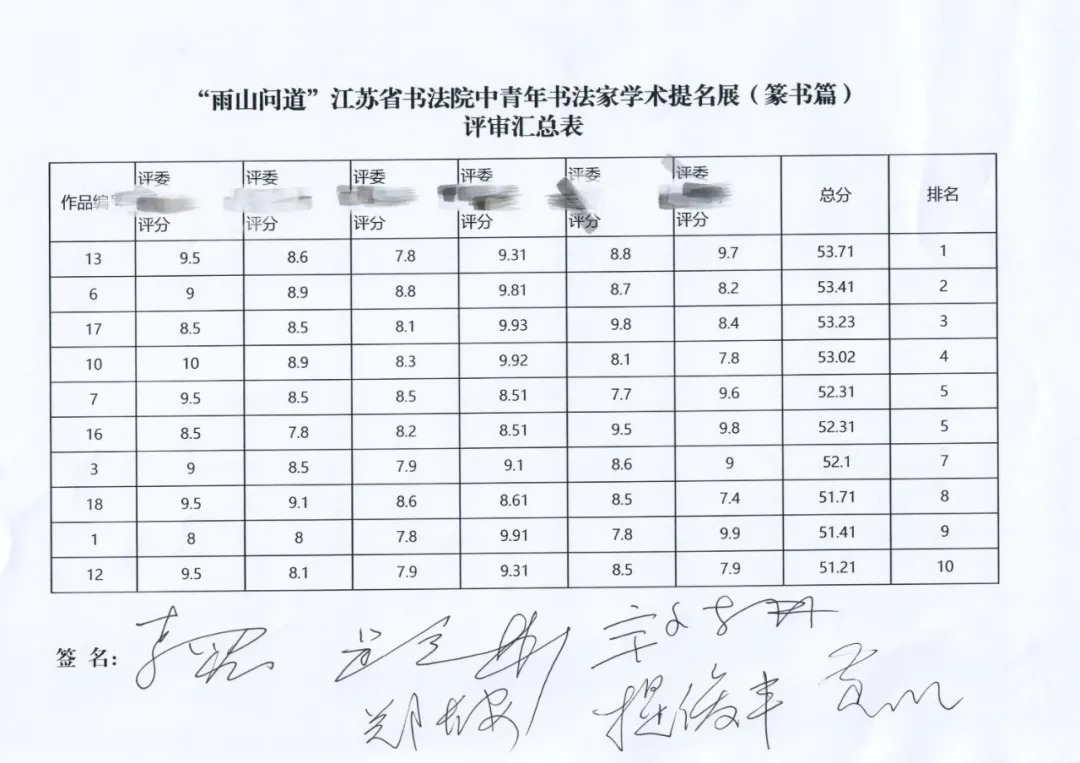 “雨山问道”江苏省书法院中青年书法家学术提名展（篆书篇）
评审汇总表
作品编 评委 评分 评委 评分 评委 评分 评委 评分 评委 评分 评委 评分 总分 排名
13 9.5 8.6 7.8 9.31 8.8 9.7 53.71 1
6 9 8.9 8.8 9.81 8.7 8.2 53.41 2
17 8.5 8.5 8.1 9.93 9.8 8.4 53.23 3
10 10 8.9 8.3 9.92 8.1 7.8 53.02 4
7 9.5 8.5 8.5 8.51 7.7 9.6 52.31 5
16 8.5 7.8 8.2 8.51 9.5 9.8 52.31 5
3 9 8.5 7.9 9.1 8.6 9 52.1 7
18 9.5 9.1 8.6 8.61 8.5 7.4 51.71 8
1 8 8 7.8 9.91 7.8 9.9 51.41 9
12 9.5 8.1 7.9 9.31 8.5 7.9 51.21 10
签 名：